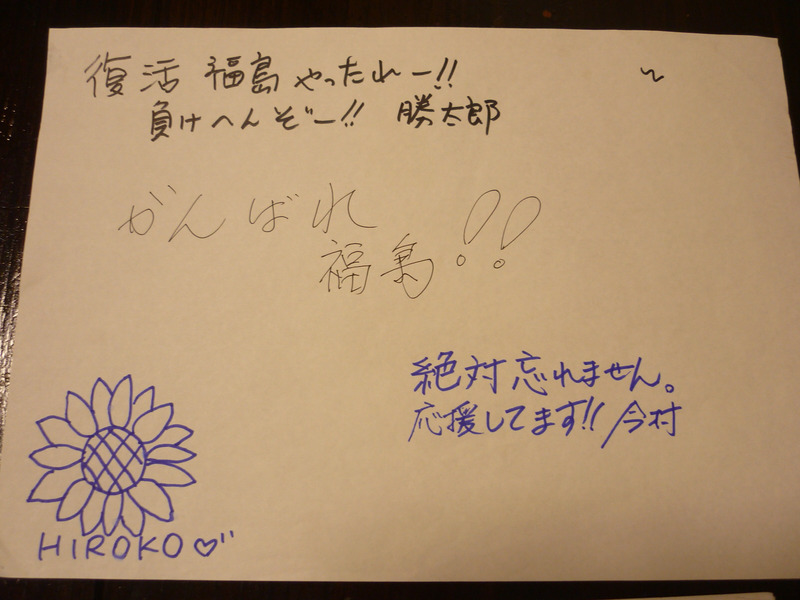 復活 福島 やったれー!!
負けへんぞー!! 勝太郎
がんばれ
福島!!
絶対忘れません。
応援してます!! 今村
HIROKO♡